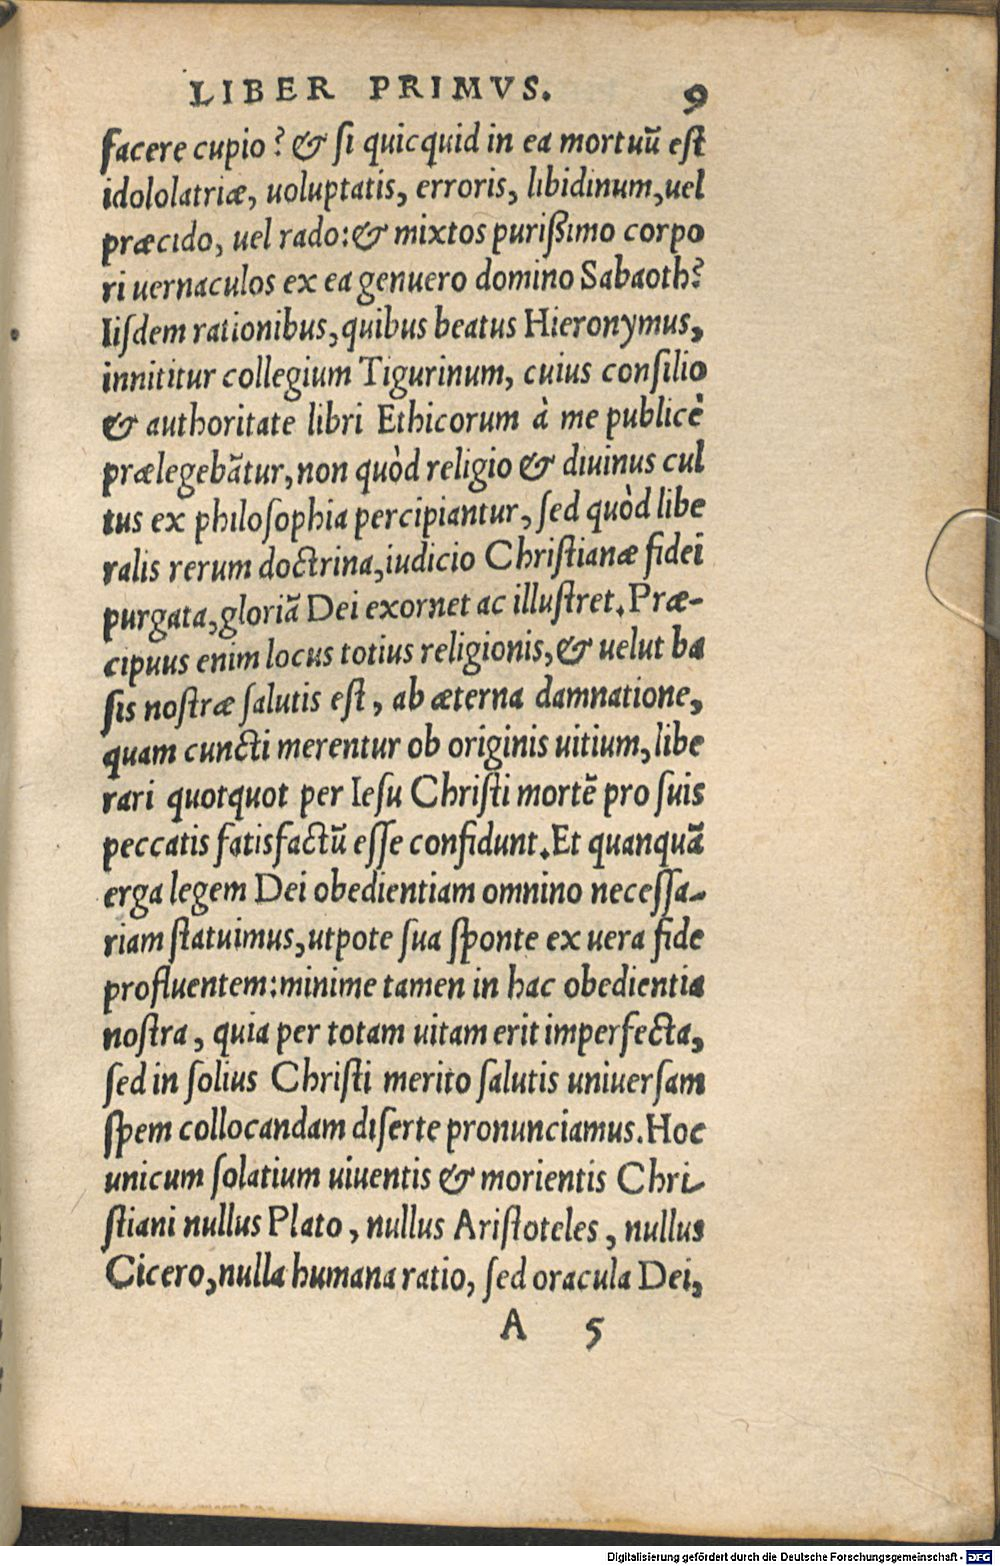 LIBER PRIMVS. 9
facere cupio? & ſi quicquid in ea mortuū eſt
idololatriæ, uoluptatis, erroris, libidinum, uel
præcido, uel rado: & mixtos purißimo corpo
ri uernaculos ex ea genuero domino Sabaoth?
Iiſdem rationibus, quibus beatus Hieronymus,
innititur collegium Tigurinum, cuius conſilio
& authoritate libri Ethicorum à me publicè
prælegebātur, non quòd religio & diuinus cul
tus ex philoſophia percipiantur, ſed quòd libe
ralis rerum doctrina, iudicio Chriſtianæ fidei
purgata, gloriā Dei exornet ac illuſtret. Præ-
cipuus enim locus totius religionis, & uelut ba
ſis noſtræ ſalutis eſt, ab æterna damnatione,
quam cuncti merentur ob originis uitium, libe
rari quotquot per Ieſu Chriſti mortē pro ſuis
peccatis ſatisfactū eſſe confidunt. Et quanquā
erga legem Dei obedientiam omnino neceſſa-
riam ſtatuimus, utpote ſua ſponte ex uera fide
profluentem: minime tamen in hac obedientia
noſtra, quia per totam uitam erit imperfecta,
ſed in ſolius Chriſti merito ſalutis uniuerſam
ſpem collocandam diſerte pronunciamus. Hoc
unicum ſolatium uiuentis & morientis Chri-
ſtiani nullus Plato, nullus Ariſtoteles, nullus
Cicero, nulla humana ratio, ſed oracula Dei,
A 5
Digitalisierung gefördert durch die Deutsche Forschungsgemeinschaft - DFG